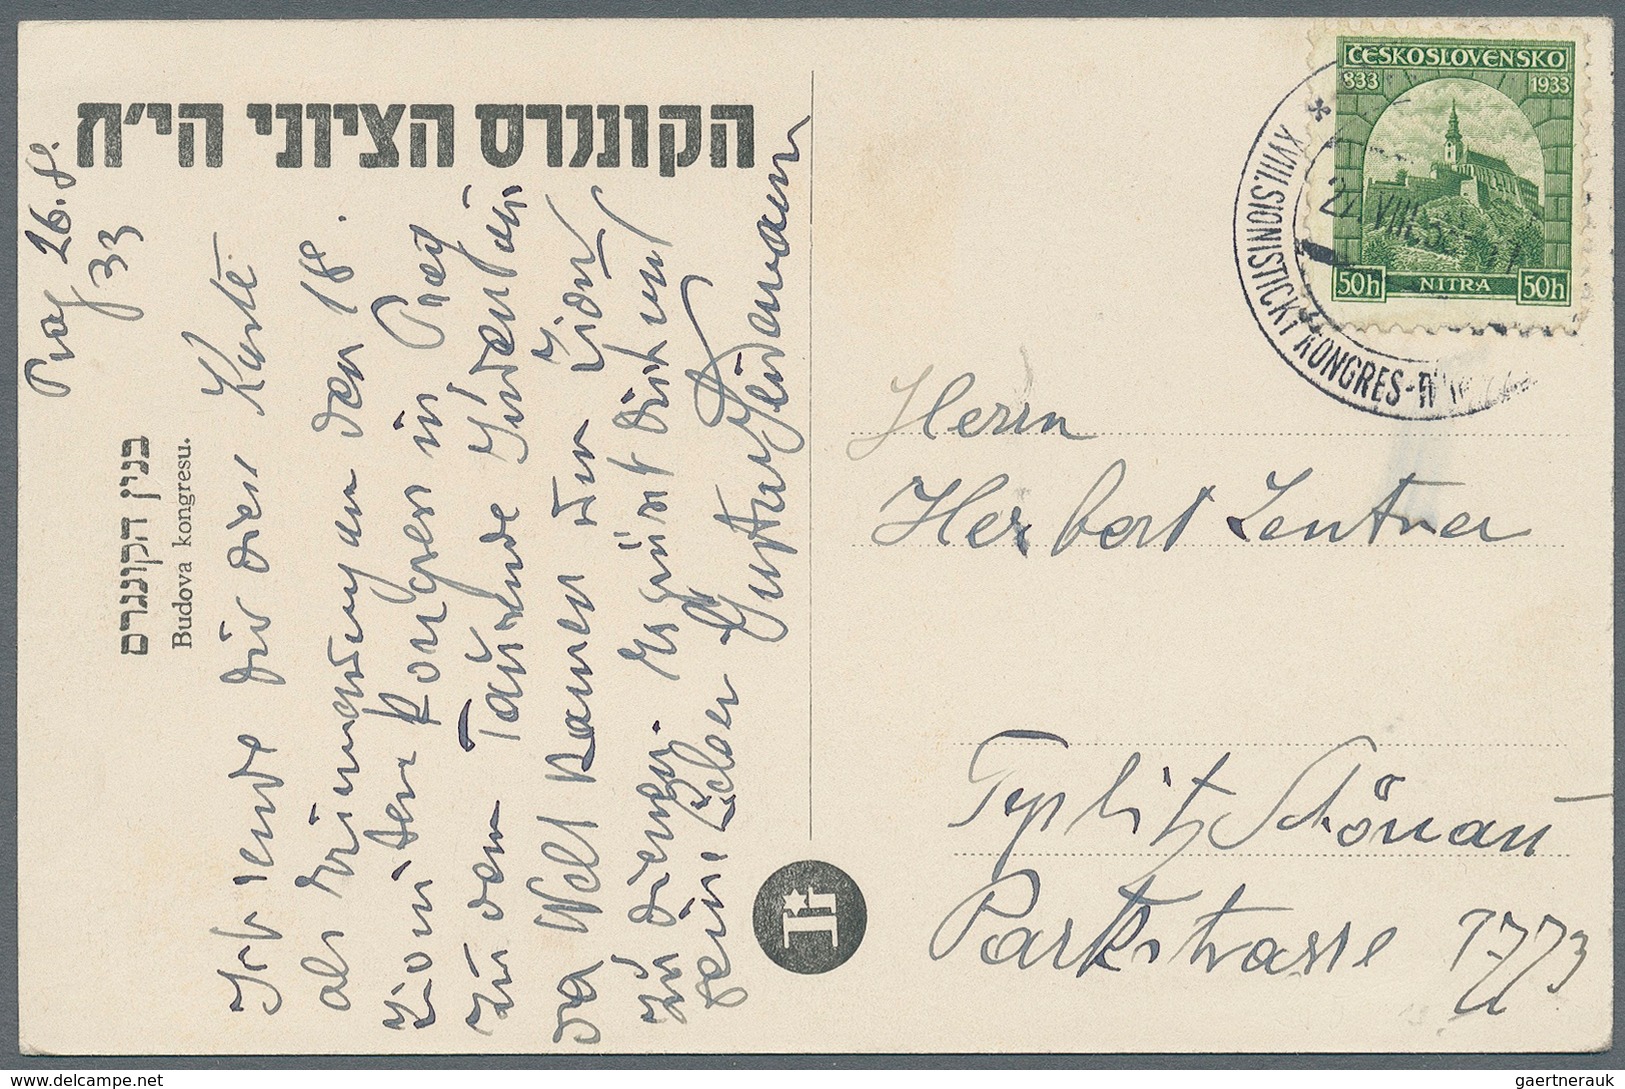 הקונגרס הציוני הי״ח
Prag 26.8.
33
בנין הקונגרס
Budova kongresu.
Ich sende dir diese Karte
als Erinnerung an den 18.
Zionisten Kongress in Prag
zu dem Tausende Juden aus
der Welt kamen um Zion
zu dienen. Es grüsst dich und
deine Lieben
Gustav
ČESKOSLOVENSKO
833 1933
50h NITRA 50h
XVIII. SIONISTICKÝ KONGRES-
VIII.
Herrn
Herbert Lentner
Teplitz Schönau
Parkstrasse 1773
gaertnerauk